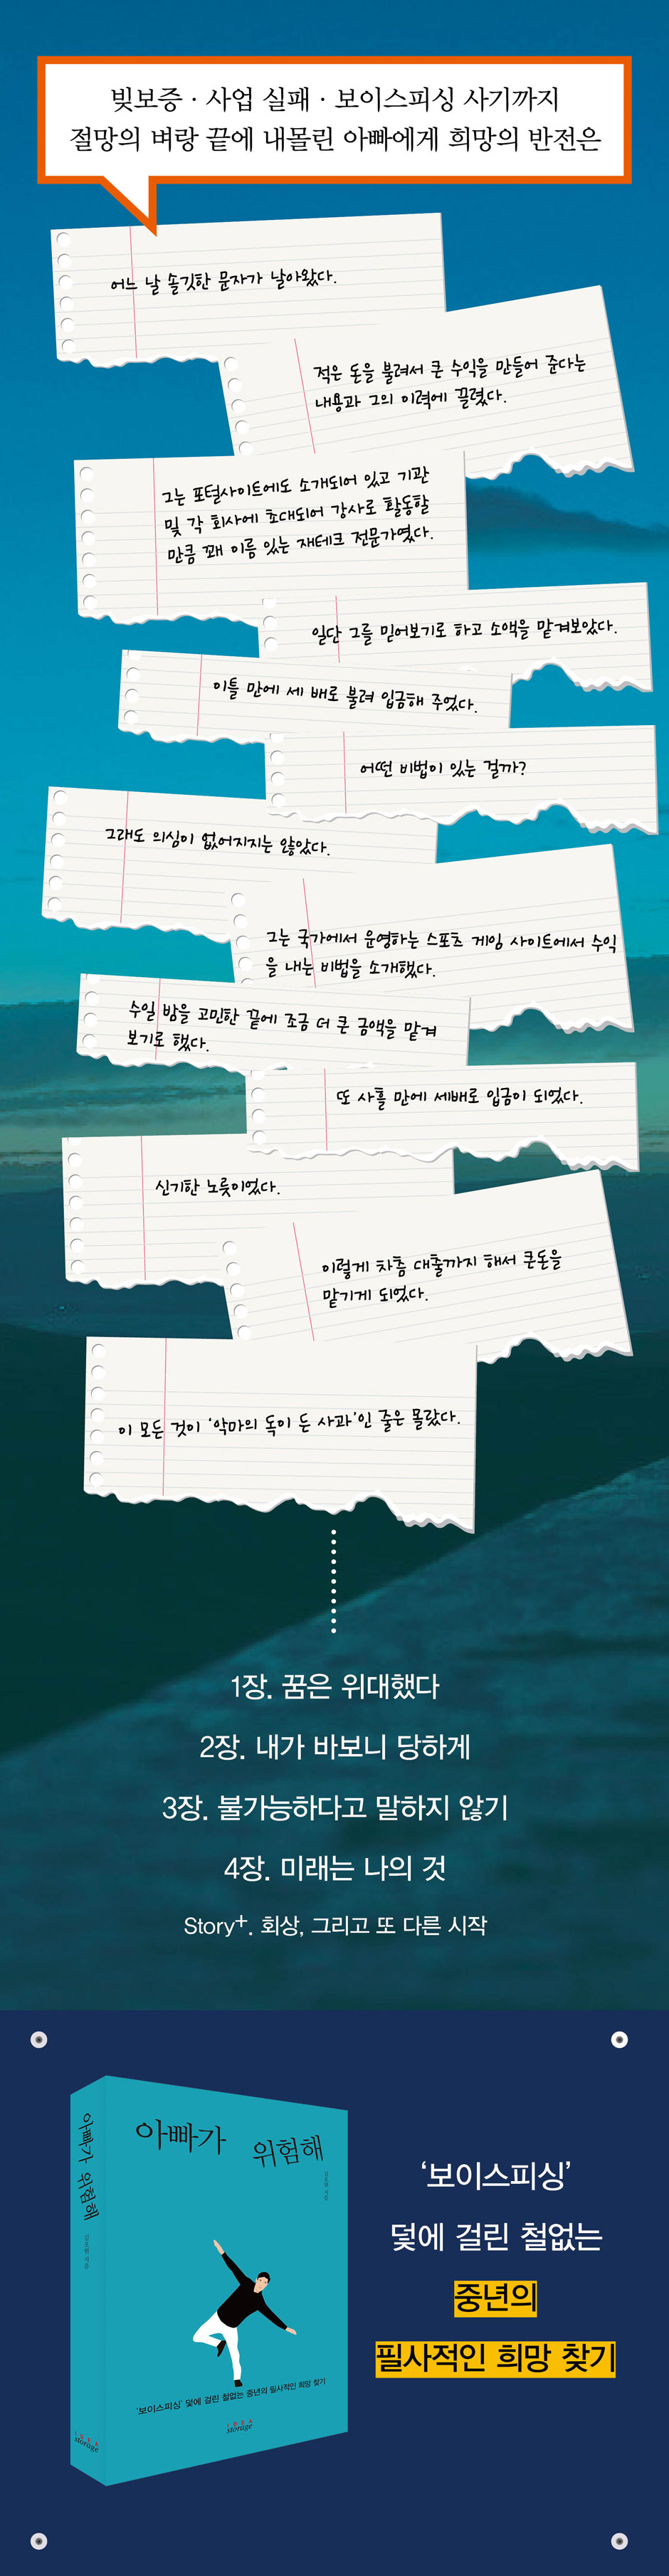 빚보증 · 사업 실패 · 보이스피싱 사기까지
절망의 벼랑 끝에 내몰린 아빠에게 희망의 반전은
어느 날 솔깃한 문자가 날아왔다.
적은 돈을 불려서 큰 수익을 만들어 준다는
내용과 그의 이력에 끌렸다.
그는 포털사이트에도 소개되어 있고 기관
및 각 회사에 초대되어 강사로 활동할
만큼 꽤 이름 있는 재테크 전문가였다.
일단 그를 믿어보기로 하고 소액을 맡겨보았다.
이틀 만에 세 배로 불려 입금해 주었다.
어떤 비법이 있는 걸까?
그래도 의심이 없어지지는 않았다.
그는 국가에서 운영하는 스포츠 게임 사이트에서 수익
을 내는 비법을 소개했다.
수일 밤을 고민한 끝에 조금 더 큰 금액을 맡겨
보기로 했다.
또 사흘 만에 세배로 입금이 되었다.
신기한 노릇이었다.
이렇게 차츰 대출까지 해서 큰돈을
맡기게 되었다.
이 모든 것이 ‘악마의 독이 든 사과’인 줄은 몰랐다.
1장. 꿈은 위대했다
2장. 내가 바보니 당하게
3장. 불가능하다고 말하지 않기
4장. 미래는 나의 것
Story+. 회상, 그리고 또 다른 시작
아빠가 위험해
지음
IDEA
storage
아빠가 위험해
지음
‘보이스피싱’ 덫에 걸린 철없는 중년의 필사적인 희망 찾기
IDEA
storage
‘보이스피싱’
덫에 걸린 철없는
중년의
필사적인 희망 찾기